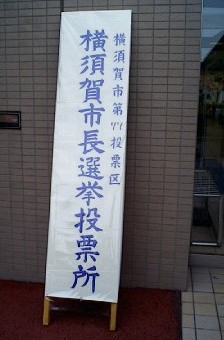 横須賀市第77投票区
横須賀市長選挙投票所